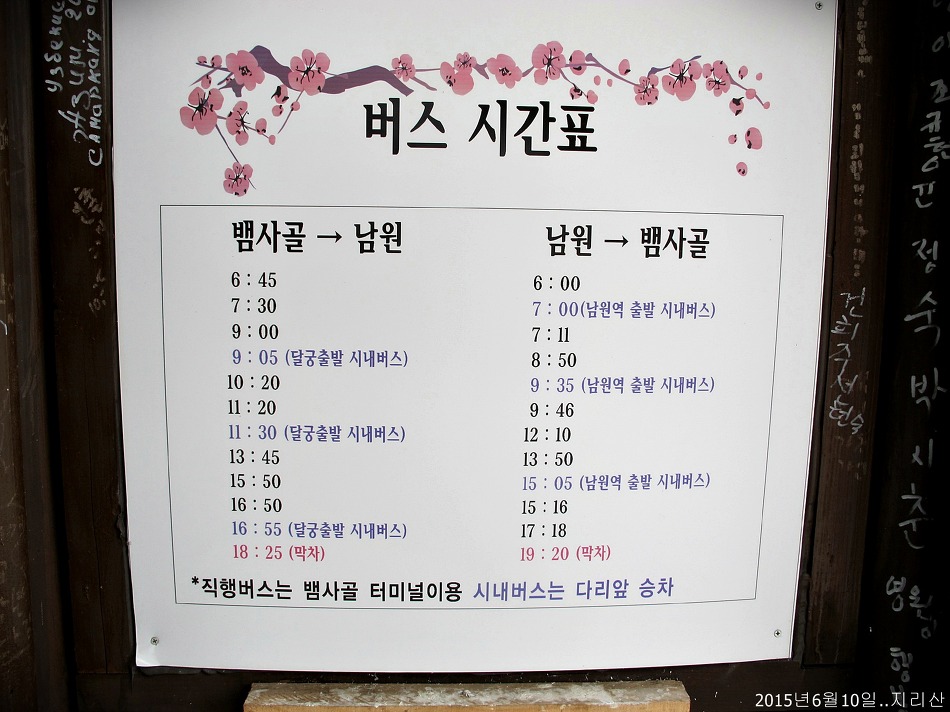 버스 시간표
뱀사골 → 남원
6 : 45
7 : 30
9 : 00
9 : 05 (달궁출발 시내버스)
10 : 20
11 : 20
11 : 30 (달궁출발 시내버스)
13 : 45
15 : 50
16 : 50
16 : 55 (달궁출발 시내버스)
18 : 25 (막차)
남원 → 뱀사골
6 : 00
7 : 00(남원역 출발 시내버스)
7 : 11
8 : 50
9 : 35 (남원역 출발 시내버스)
9 : 46
12 : 10
13 : 50
15 : 05 (남원역 출발 시내버스)
15 : 16
17 : 18
19 : 20 (막차)
*직행버스는 뱀사골 터미널이용 시내버스는 다리앞 승차
정숙 박시춘
2015년6월10일..지리산